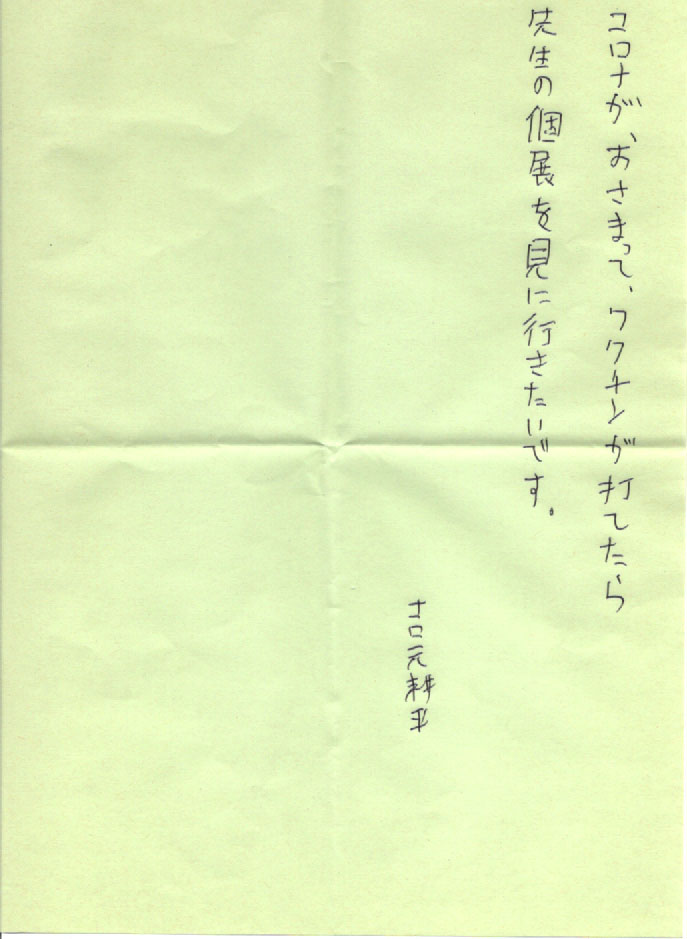 コロナが、おさまって、ワクチンが打てたら
先生の個展を見に行きたいです。
吉元耕平